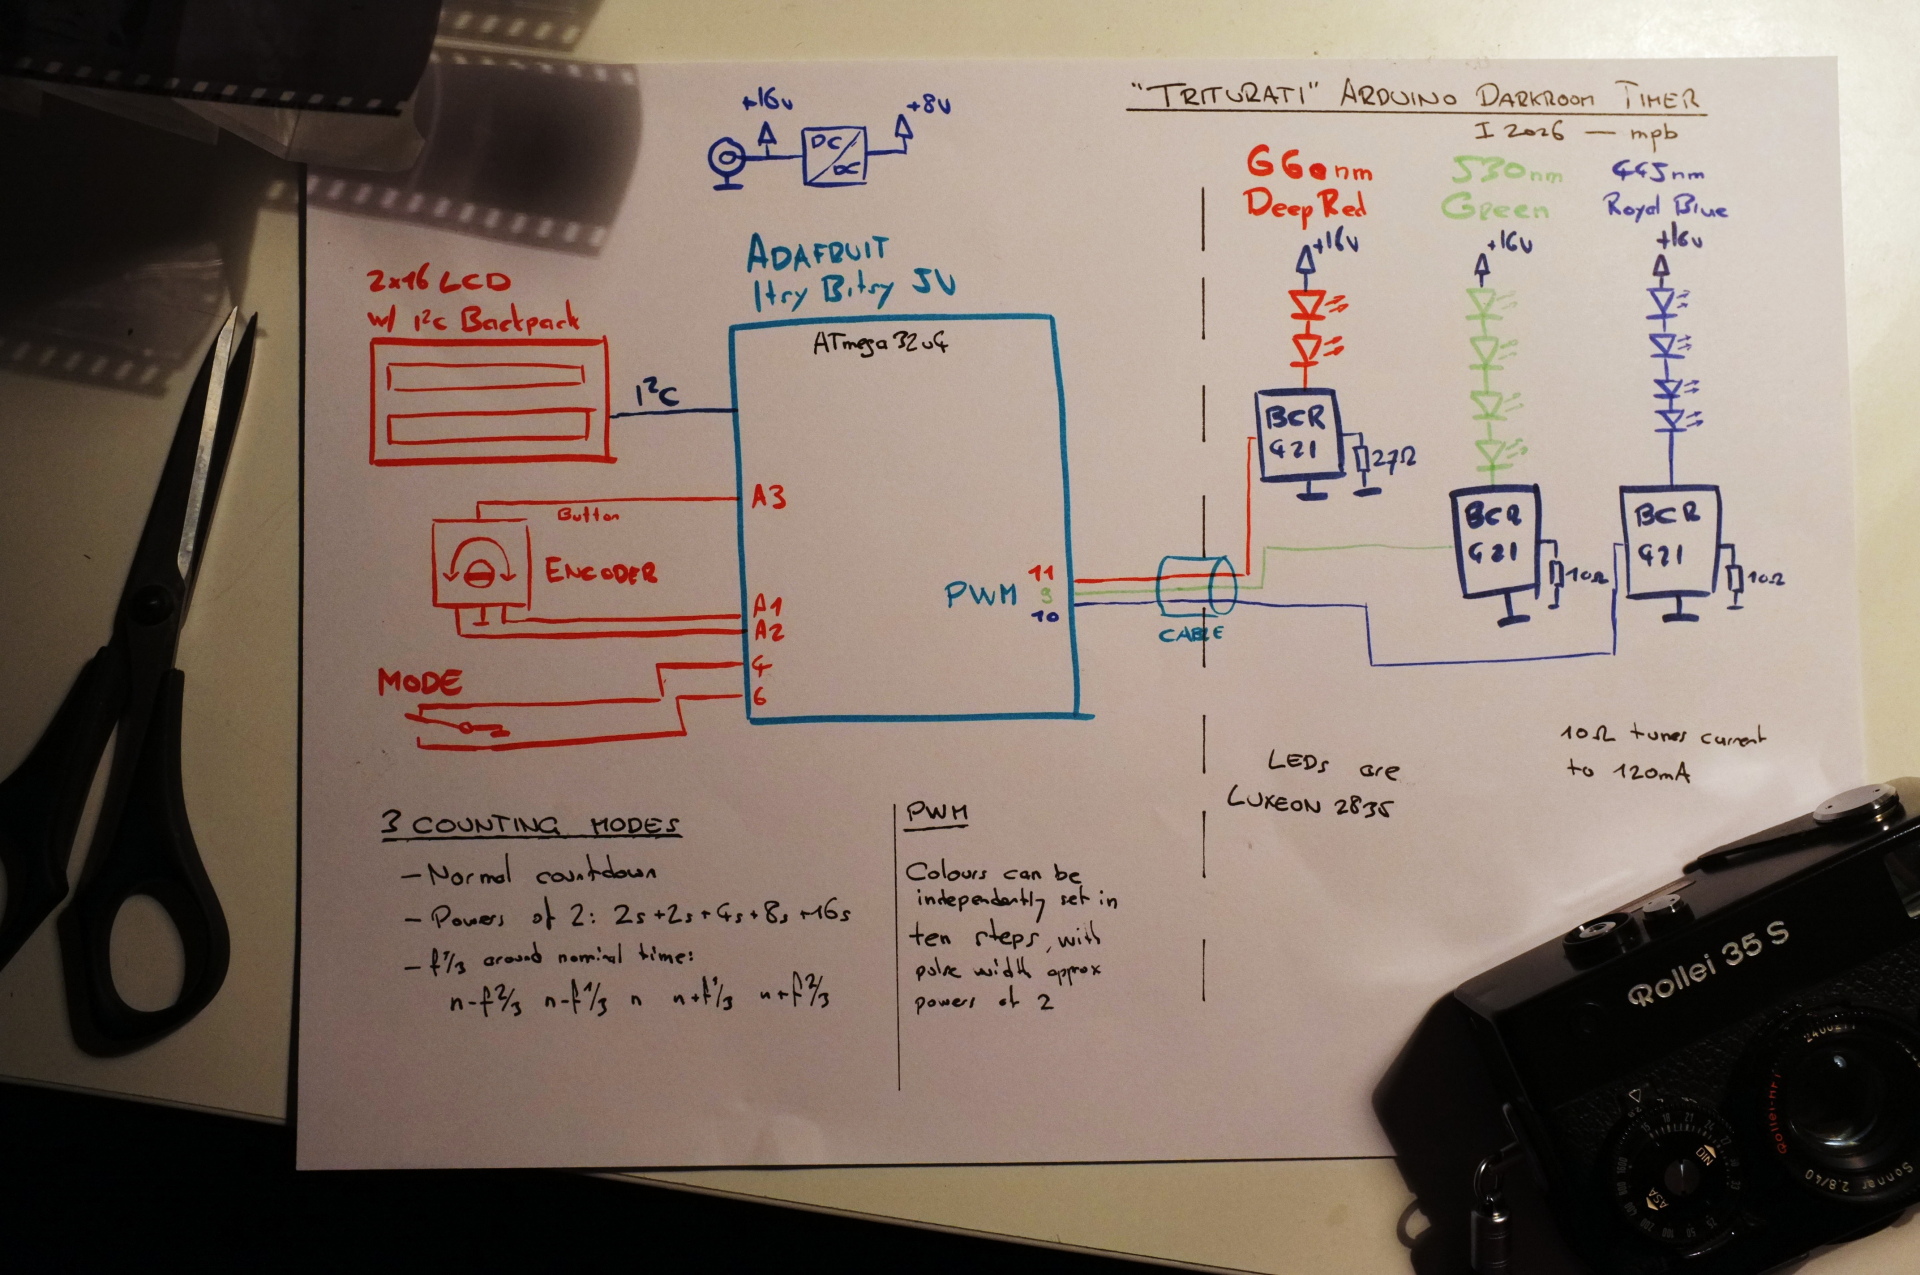 "TRITURATI" ARDUINO DARKROOM TIMER
I 2026 — mpb
+16v
+8V
DC/DC
660nm
Deep Red
+16v
530nm
Green
+16v
445nm
Royal Blue
+16v
ADAFRUIT
Itsy Bitsy 5V
ATmega32u4
2x16 LCD
w/ I²C Backpack
I²C
A3
Button
ENCODER
A1
A2
MODE
4
6
PWM
11
9
10
CABLE
BCR
421
27Ω
BCR
421
10Ω
BCR
421
10Ω
LEDs are
LUXEON 2835
10Ω tunes current
to 120mA
3 COUNTING MODES
- Normal countdown
- Powers of 2: 2s+2s+4s+8s+16s
- f⅓ around nominal time:
n-f⅔ n-f⅓ n n+f⅓ n+f⅔
PWM
Colours can be
independently set in
ten steps, with
pulse width approx
powers of 2
Rollei 35 S
Rollei-HFT
Sonnar 2.8/40
DIN
ASA